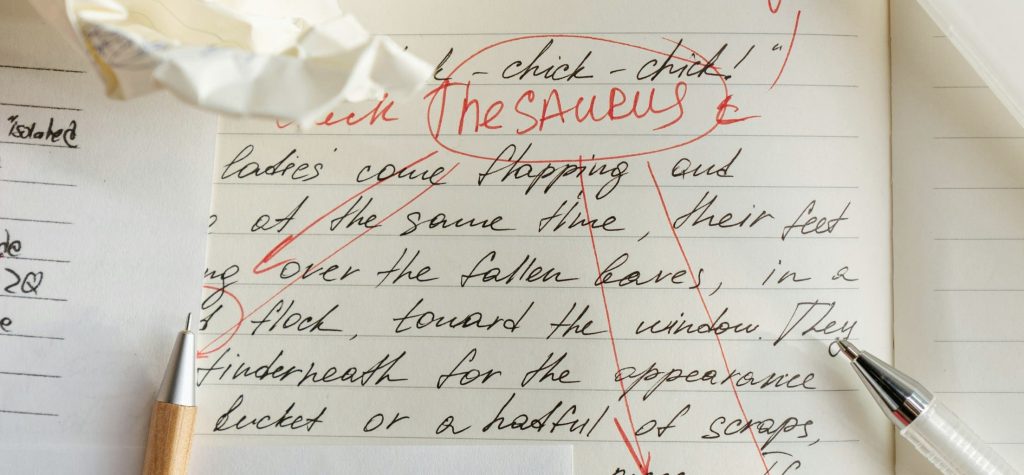 "isolated
2Q
- chick - chick!"
TheSAURUS
ladies' come flapping and
at the same time, their feet
over the fallen leaves, in a
flock, toward the window. They
underneath for the appearance
bucket or a hatful of scraps,